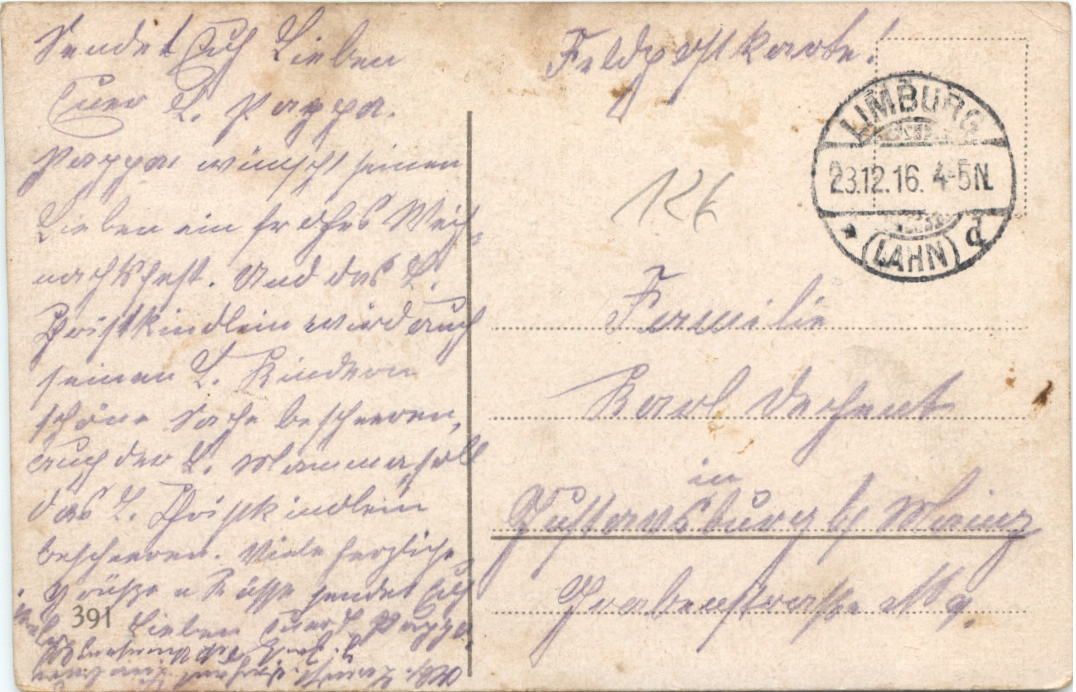 Sendet Euch Lieben
Euer L. Pappa.
Pappa wünscht seinen
Lieben ein frohes Weih-
nachtsfest. Und das L.
Christkindlein wird auch
seinen L. Kindern
schöne Sache bescheeren,
auch der L. Mamma soll
das L. Christkindlein
bescheeren. Viele herzliche
Grüsse u Küsse sendet Euch
Lieben Euer L. Pappa.
391
Feldpostkarte!
LIMBURG
23.12.16. 4-5N.
(LAHN) d
126
Familie
Karl Dechent
in
Gustavsburg b/ Mainz